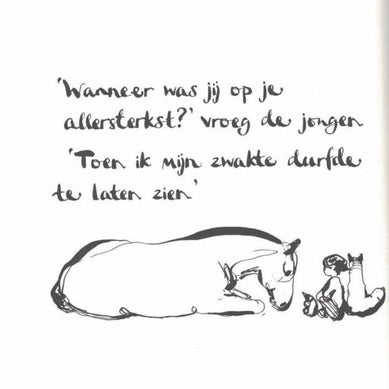 'Wanneer was jij op je
allersterkst?' vroeg de jongen
'Toen ik mijn zwakte durfde
te laten zien.'